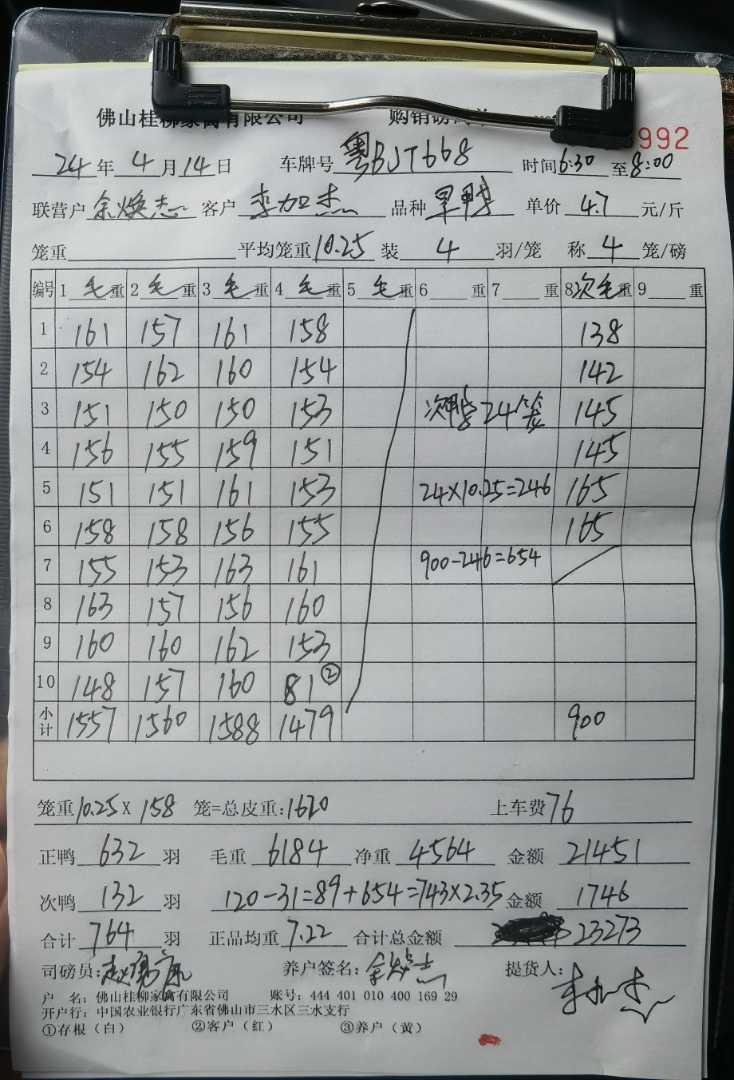 佛山桂柳家禽有限公司 购销磅码单 992
24年4月14日 车牌号 粤BJT668 时间6:30至8:00
联营户 余焕志 客户 李加杰 品种 旱鸭 单价 4.7 元/斤
笼重 平均笼重10.25 装 4 羽/笼 称 4 笼/磅
编号 1 毛重 2 毛重 3 毛重 4 毛重 5 毛重 6 重 7 重 8次毛重 9 重
1 161 157 161 158 138
2 154 162 160 154 142
3 151 150 150 153 次鸭 24笼 145
4 156 155 159 151 145
5 151 151 161 153 24×10.25=246 165
6 158 158 156 155 165
7 155 153 163 161 900-246=654
8 163 157 156 160
9 160 160 162 153
10 148 157 160 81②
小计 1557 1560 1588 1479 900
笼重10.25×158 笼=总皮重:1620 上车费76
正鸭 632 羽 毛重 6184 净重 4564 金额 21451
次鸭 132 羽 120-31=89+654=743×2.35 金额 1746
合计 764 羽 正品均重 7.22 合计总金额 23273
司磅员: 养户签名: 余焕志 提货人: 李加杰
户 名: 佛山桂柳家禽有限公司 账号: 444 401 010 400 169 29
开户行: 中国农业银行广东省佛山市三水区三水支行
①存根（白） ②客户（红） ③养户（黄）